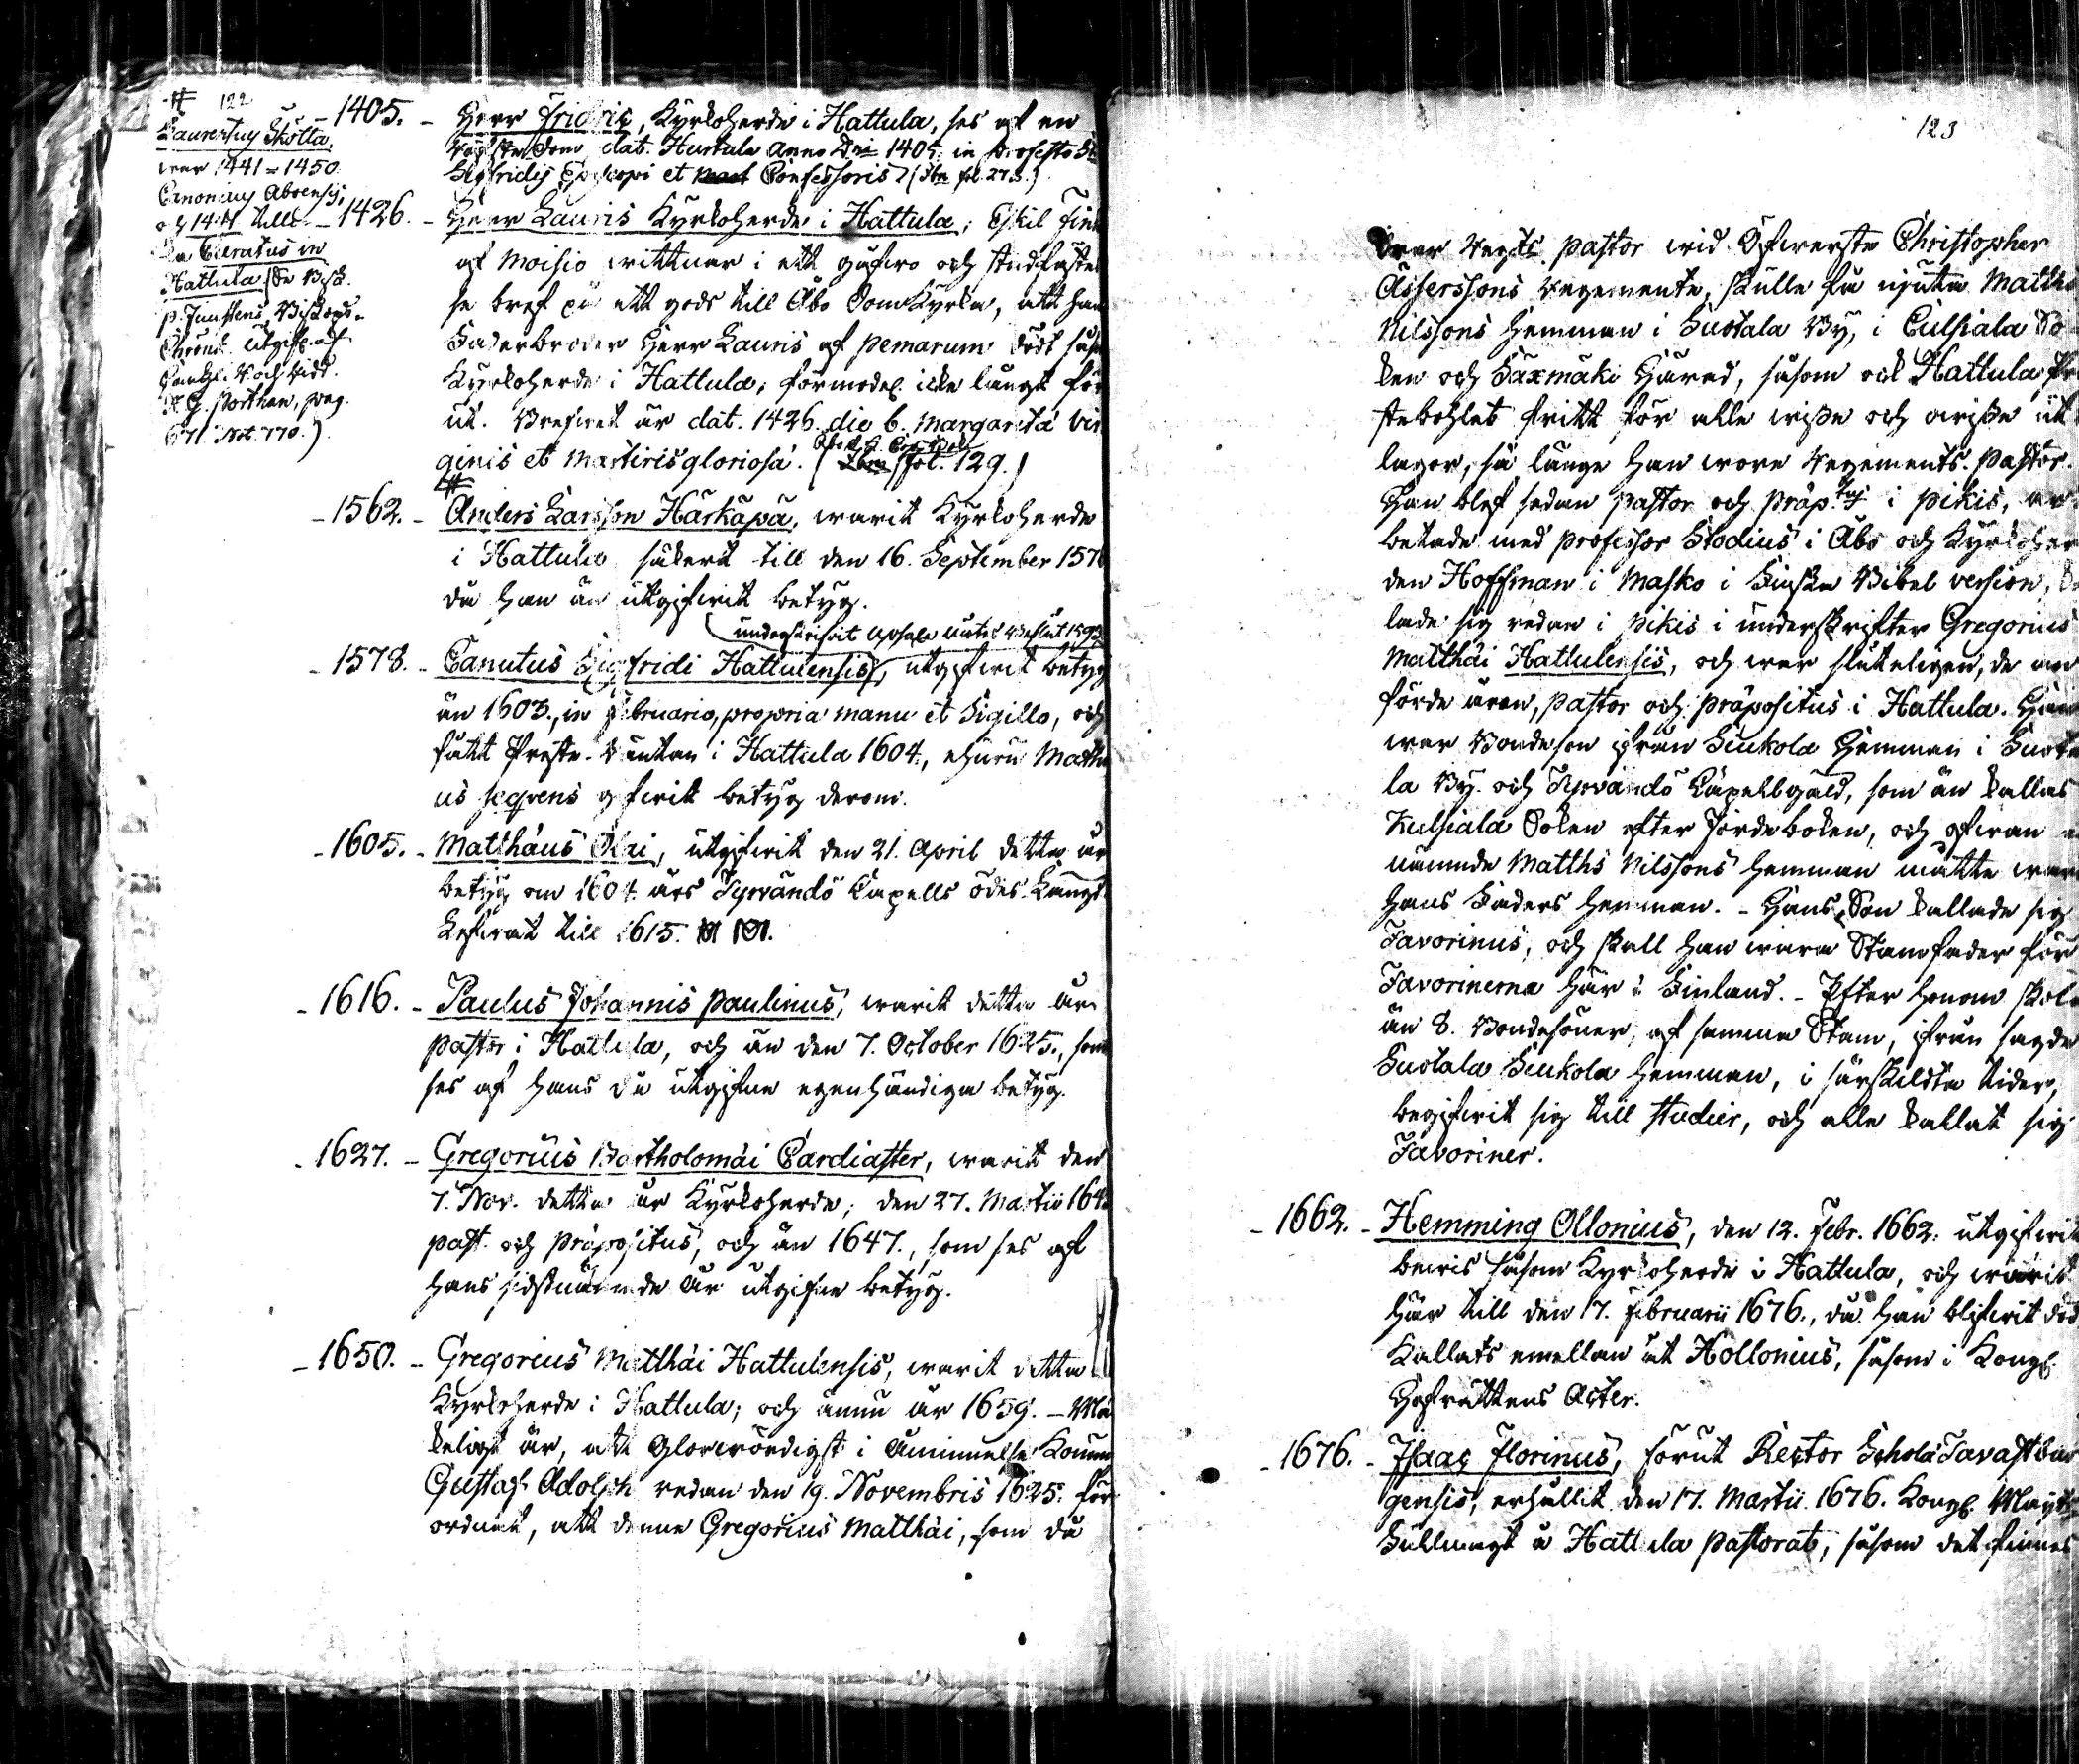 # 122
Laurentius Skötta,
war 1441-1450
Canonicus Aboensis,
och 1444 tillika
Curatus in
Hattula (Se Bisk.
P. Juustens Biskops-
Chrönik. utgifv. af
Cantzl. R. och Ridd.
H. G. Porthan, pag.
671. Not. 770.)
- 1405. - Herr Fridric, Kyrkoherde i Hattula, ses af en
dat. Hattula Anno Dni 1405. in profesto Sti
Sigfridis Episcopi et Confessoris) (Ibm fol. 273.)
- 1426. - Herr Lauris Kyrkoherde i Hattula; Eskil Fink
af Moisio wittnar i ett gåfwo och stadfästel
se bref på ett gods till Åbo Dom Kyrka, att hans
Faderbroder Herr Lauris af Pemarum dödt såsom
Kyrkoherde i Hattula, förmodel. icke långt för
ut. Brefwet är dat. 1426. die b. Margareta Vir
ginis et Martiris gloriosa. (fol. 129.)
#
- 1562. - Anders Larsson Härkäpä, warit Kyrkoherde
i Hattula säkert till den 16. September 157
då han än utgifwit betyg.
underskrifvit Upsala Mötes Beslut 1593
- 1578. - Canutus Sigfridi Hattulensis, utgifwit betyg
än 1603., in Februario, propria manu et Sigillo, och
fått Preste-Räntan i Hattula 1604, ehuru Matthæ
us seqvens gifwit betyg derom.
- 1605. - Matthäus Olai, utgifwit den 21. April detta år
betyg om 1604 års Tyrvändö Capells ödes-Längd.
Lefwat till 1615.
- 1616. - Paulus Johannis Paulinus, warit detta år
Pastor i Hattula, och än den 7. October 1625., som
ses af hans då utgifne egenhändiga betyg.
- 1627. - Gregorius Bartholomäi Cardiaster, warit den
7. Nov. detta år Kyrkoherde; den 27. Martii 164
past. och Präpositus, och än 1647., som ses af
hans sidstnämnde år utgifne betyg.
- 1650. - Gregorius Matthäi Hattulensis, warit detta
Kyrkoherde i Hattula; och ännu år 1659. - Mär
keligt är, att Glorwördigst i Åminnelse Konung
Gustaf Adolph redan den 19. Novembris 1625. för
ordnat, att denne Gregorius Matthäi, som då
123
war Regts. Pastor wid Öfwerste Christopher
Asserssons Regemente, skulle få njuta Matths
Nilssons Hemman i Suotala By, i Culsiala So
ken och Säxmäki Härad, såsom ock Hattula Pre
stebohlet fritt för alla wissa och owissa ut
lagor, så länge han wore Regements-Pastor.
Han blef sedan Pastor och Präp.tus i Pikis, ar
betade med Professor Stodius i Åbo och Kyrkoher
den Hoffman i Masko i Finska Bibel version,
lade sig redan i Pikis i underskrifter Gregorius
Matthäi Hattulensis, och war sluteligen, de an
förde åren, Pastor och Präpositus i Hattula. Han
war Bondeson ifrån Siukola Hemman i Suota
la By och Tyrvändö Capellgäld, som än kallas
Kulsiala Soken efter Jordeboken, och ofwan
nämnde Matths Nilssons hemman måtte wara
hans Faders hemman. - Hans Son kallade sig
Favorinus, och skall han wara Stamfader för
Favorinerna här i Finland. - Efter honom skola
än 8. Bondesöner, af samma Stam, ifrån sagde
Suotala Siukola hemman, i särskildta tider,
begifwit sig till studier, och alla kallat sig
Favoriner.
- 1662. - Hemming Ollonius, den 12. Febr. 1662. utgifwit
bewis såsom Kyrkoherde i Hattula, och warit
här till den 17. Februarii 1676., då han blifwit död
Kallats emellan åt Hollonius, såsom i Kongl.
Hofrättens Acter.
- 1676. - Isaac Florinus, förut Rector Scholä Tavastbur
gensis, erhållit den 17. Martii 1676. Kongl. Mayts
Fullmagt å Hattula Pastorat, såsom det finnes